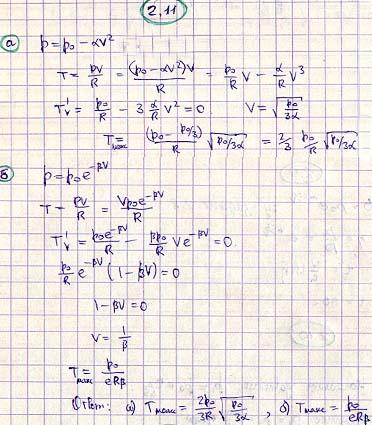 2.11
а) p = p₀ − αV²
T = pV/R = (p₀ − αV²)V/R = p₀/R V − α/R V³
T'ᵥ = p₀/R − 3 α/R V² = 0   V = √(p₀/3α)
Tмакс = (p₀ − p₀/3)/R √(p₀/3α) = 2/3 p₀/R √(p₀/3α)
б) p = p₀e^(−βV)
T = pV/R = Vp₀e^(−βV)/R
T'ᵥ = p₀e^(−βV)/R − βp₀/R Ve^(−βV) = 0
p₀/R e^(−βV) (1 − βV) = 0
1 − βV = 0
V = 1/β
Tмакс = p₀/eRβ
Ответ: а) Tмакс = 2p₀/3R √(p₀/3α), б) Tмакс = p₀/eRβ